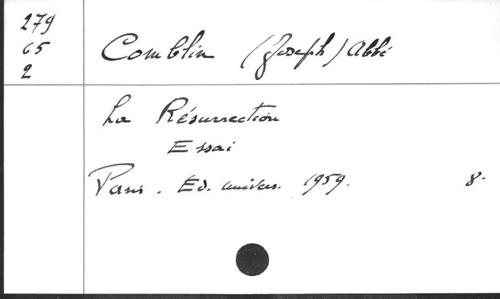 279
65
2
Comblin (Joseph) Abbé
La Résurrection
Essai
Paris. Ed. univers. 1959. 8°